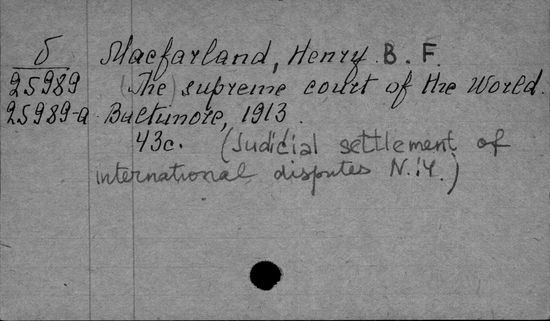 б Macfarland, Henry B. F.
25989 (The) supreme court of the World.
25989-a Baltimore, 1913.
43c. (Judicial settlement of
international disputes N. 14.)